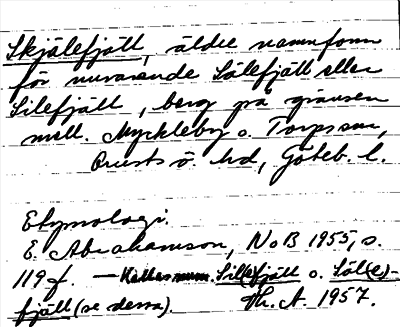 Skjälefjäll, äldre namnform
för nuvarande Sälefjäll eller
Silefjäll, berg på gränsen
mell. Myckleby o. Torps snr,
Orusts ö. hd, Göteb. l.
Etymologi.
E. Abrahamson, NoB 1955, s.
119 f. — Kallas num. Sillefjäll o. Säl(e)-
fjäll (se dessa). Th. A. 1957.